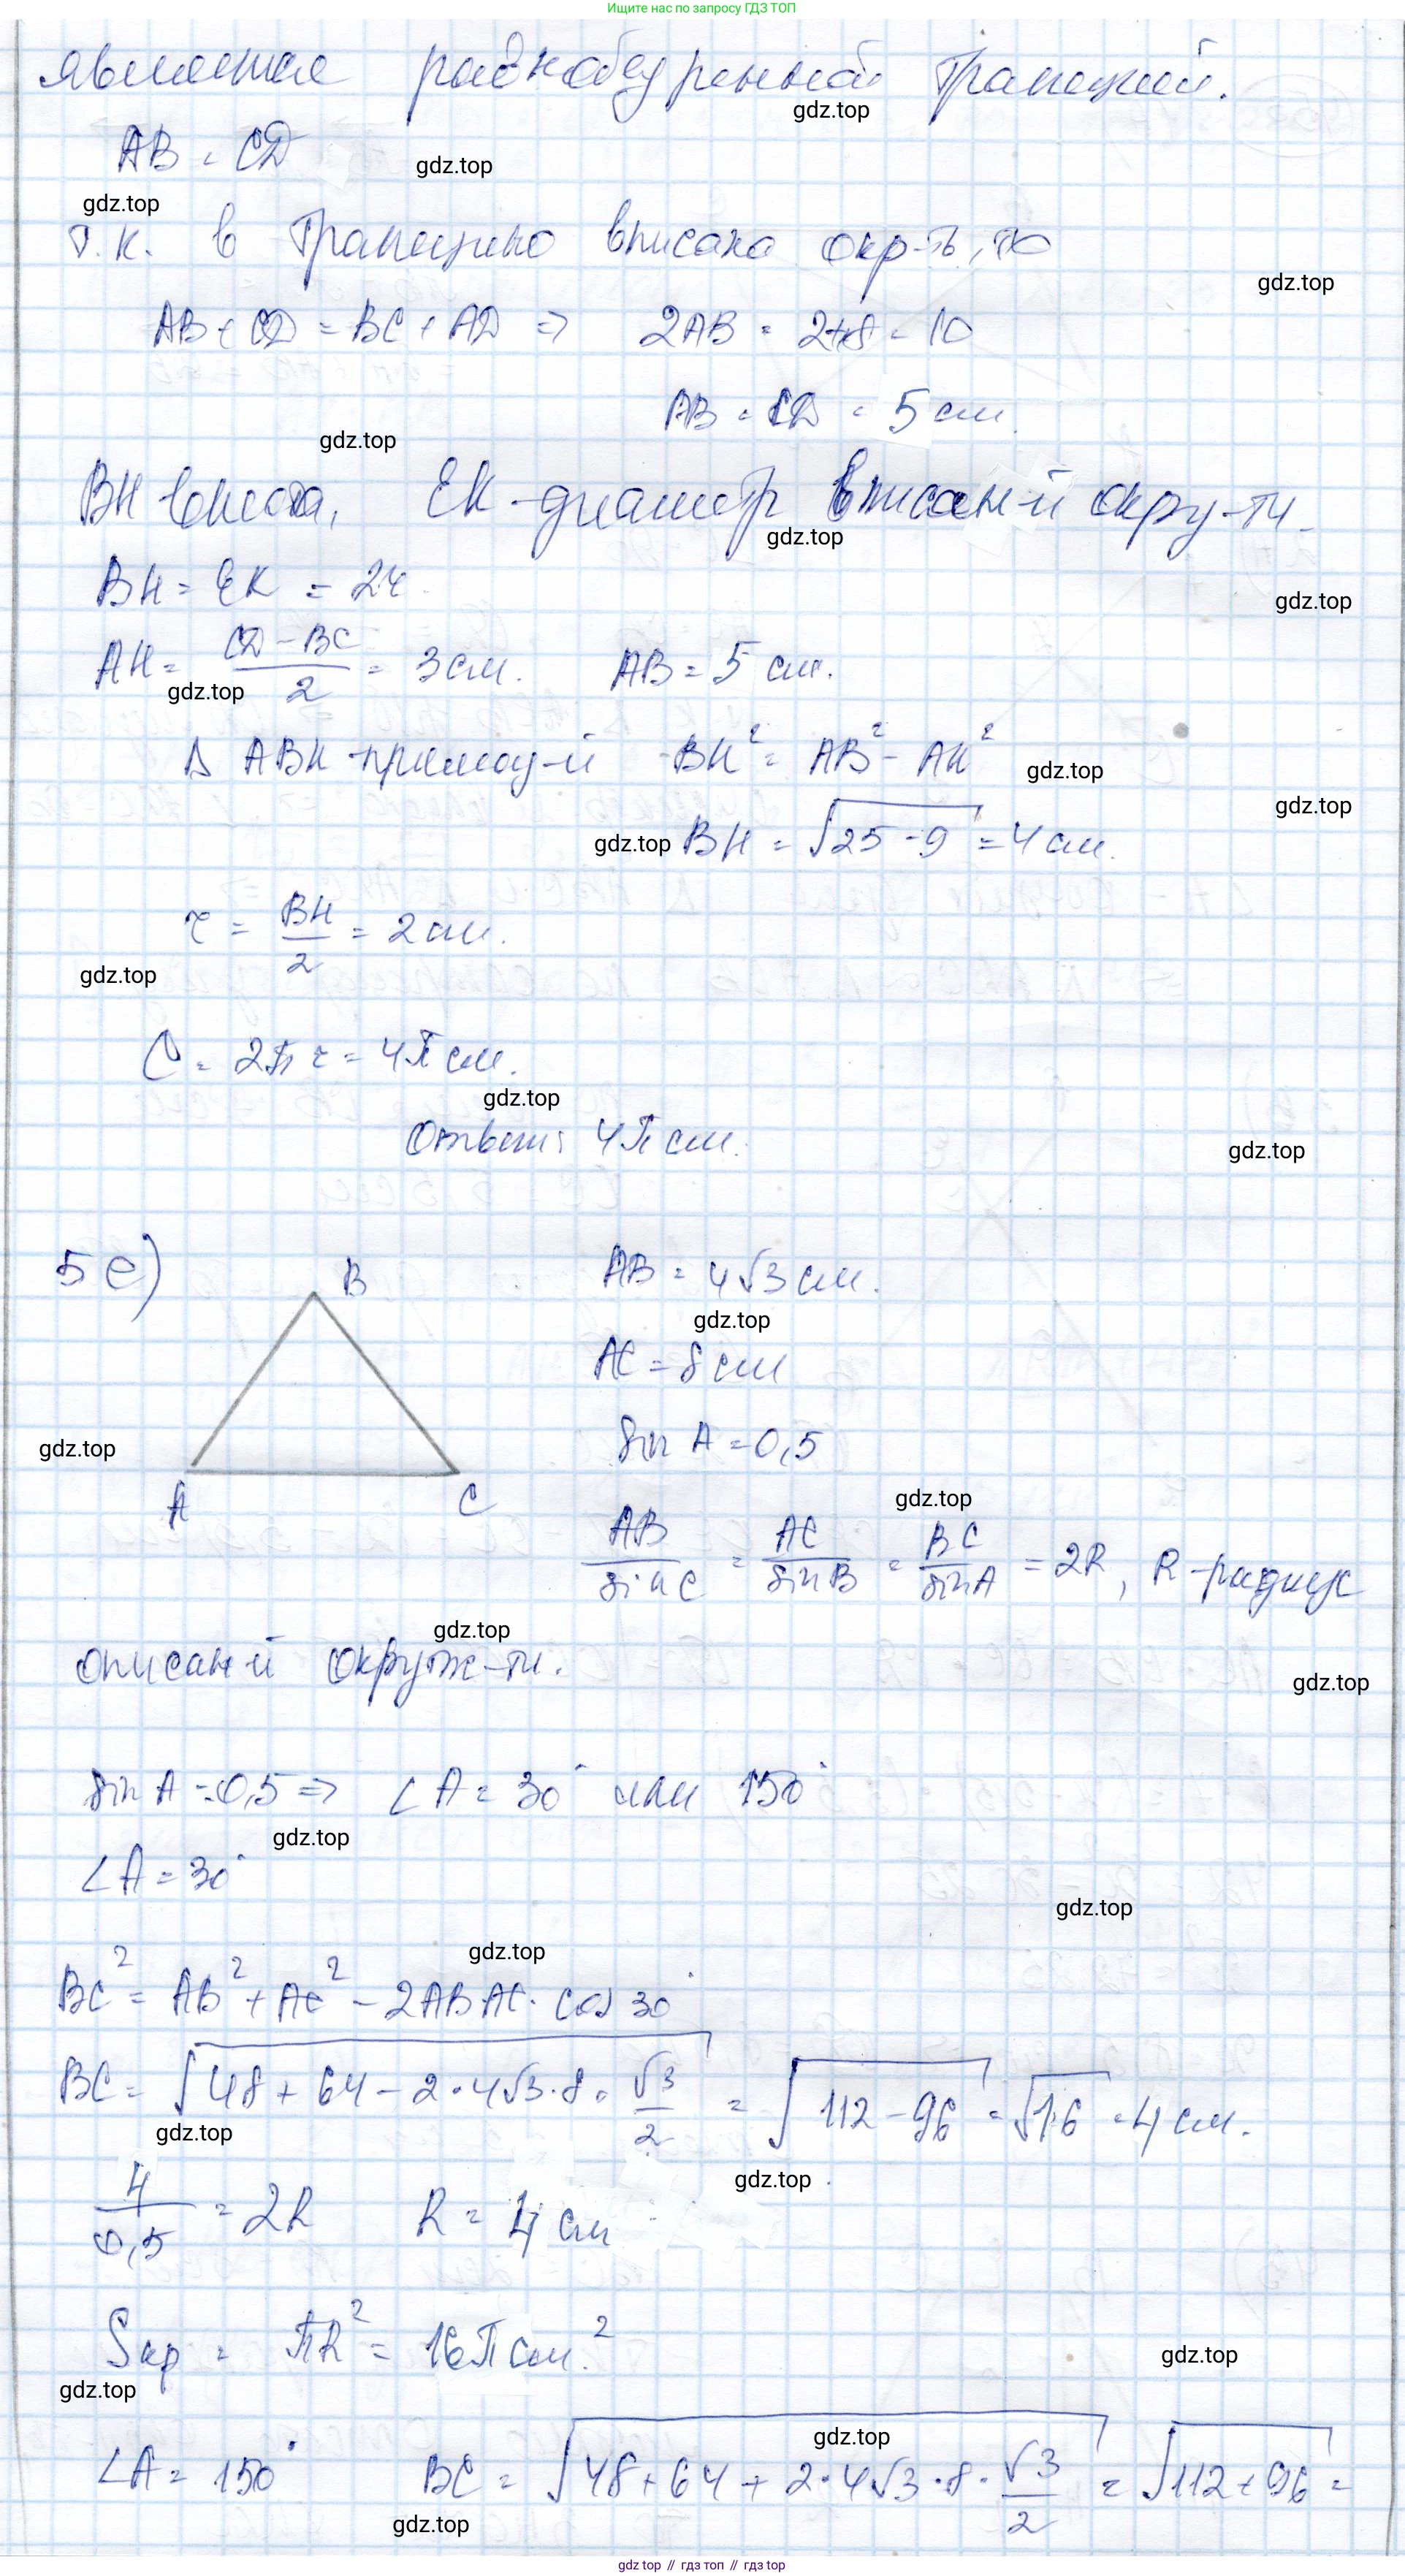 Ищите нас по запросу ГДЗ ТОП
является равнобедренной трапецией.
gdz.top
AB = CD
gdz.top
gdz.top
т.к. в трапецию вписана окр-ть, то
gdz.top
AB + CD = BC + AD => 2AB = 2+8 = 10
AB = CD = 5 см.
gdz.top
BH высота, EK - диаметр вписан-й окру-ти.
gdz.top
BH = EK = 2r.
gdz.top
AH = (CD - BC)/2 = 3 см. AB = 5 см.
gdz.top
Δ ABH - прямоу-й BH² = AB² - AH²
gdz.top
gdz.top
gdz.top
BH = √(25 - 9) = 4 см.
r = BH/2 = 2 см.
gdz.top
C = 2πr = 4π см.
gdz.top
Ответ: 4π см.
gdz.top
5 e)
B
AB = 4√3 см.
gdz.top
AC = 8 см
sin A = 0,5
gdz.top
A C
gdz.top
AB/sin C = AC/sin B = BC/sin A = 2R, R - радиус
gdz.top
описан-й окруж-ти.
gdz.top
sin A = 0,5 => ∠A = 30° или 150°
gdz.top
∠A = 30°
gdz.top
gdz.top
BC² = AB² + AC² - 2AB·AC · cos 30°
BC = √(48 + 64 - 2·4√3·8·√3/2) = √(112 - 96) = √16 = 4 см.
gdz.top
gdz.top
4/0,5 = 2R R = 4 см
Sкр = πR² = 16π см.²
gdz.top
gdz.top
gdz.top
∠A = 150° BC = √(48 + 64 + 2·4√3·8·√3/2) = √(112 + 96) =
gdz.top
gdz top // гдз топ // gdz top